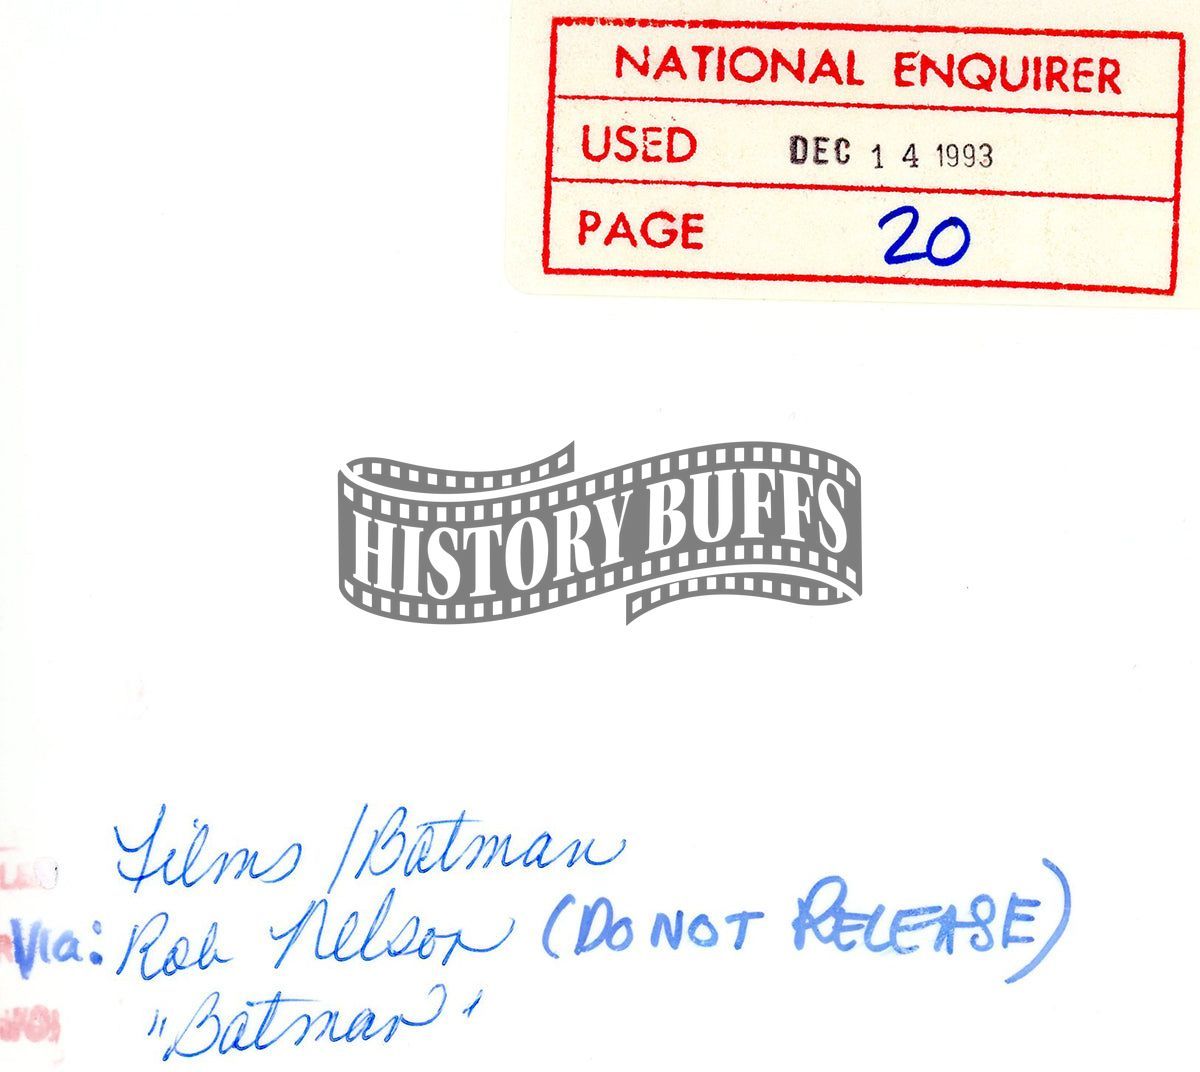 NATIONAL ENQUIRER
USED DEC 14 1993
PAGE 20
HISTORY BUFFS
Films / Batman
Via: Rob Nelson (DO NOT RELEASE)
"Batman"